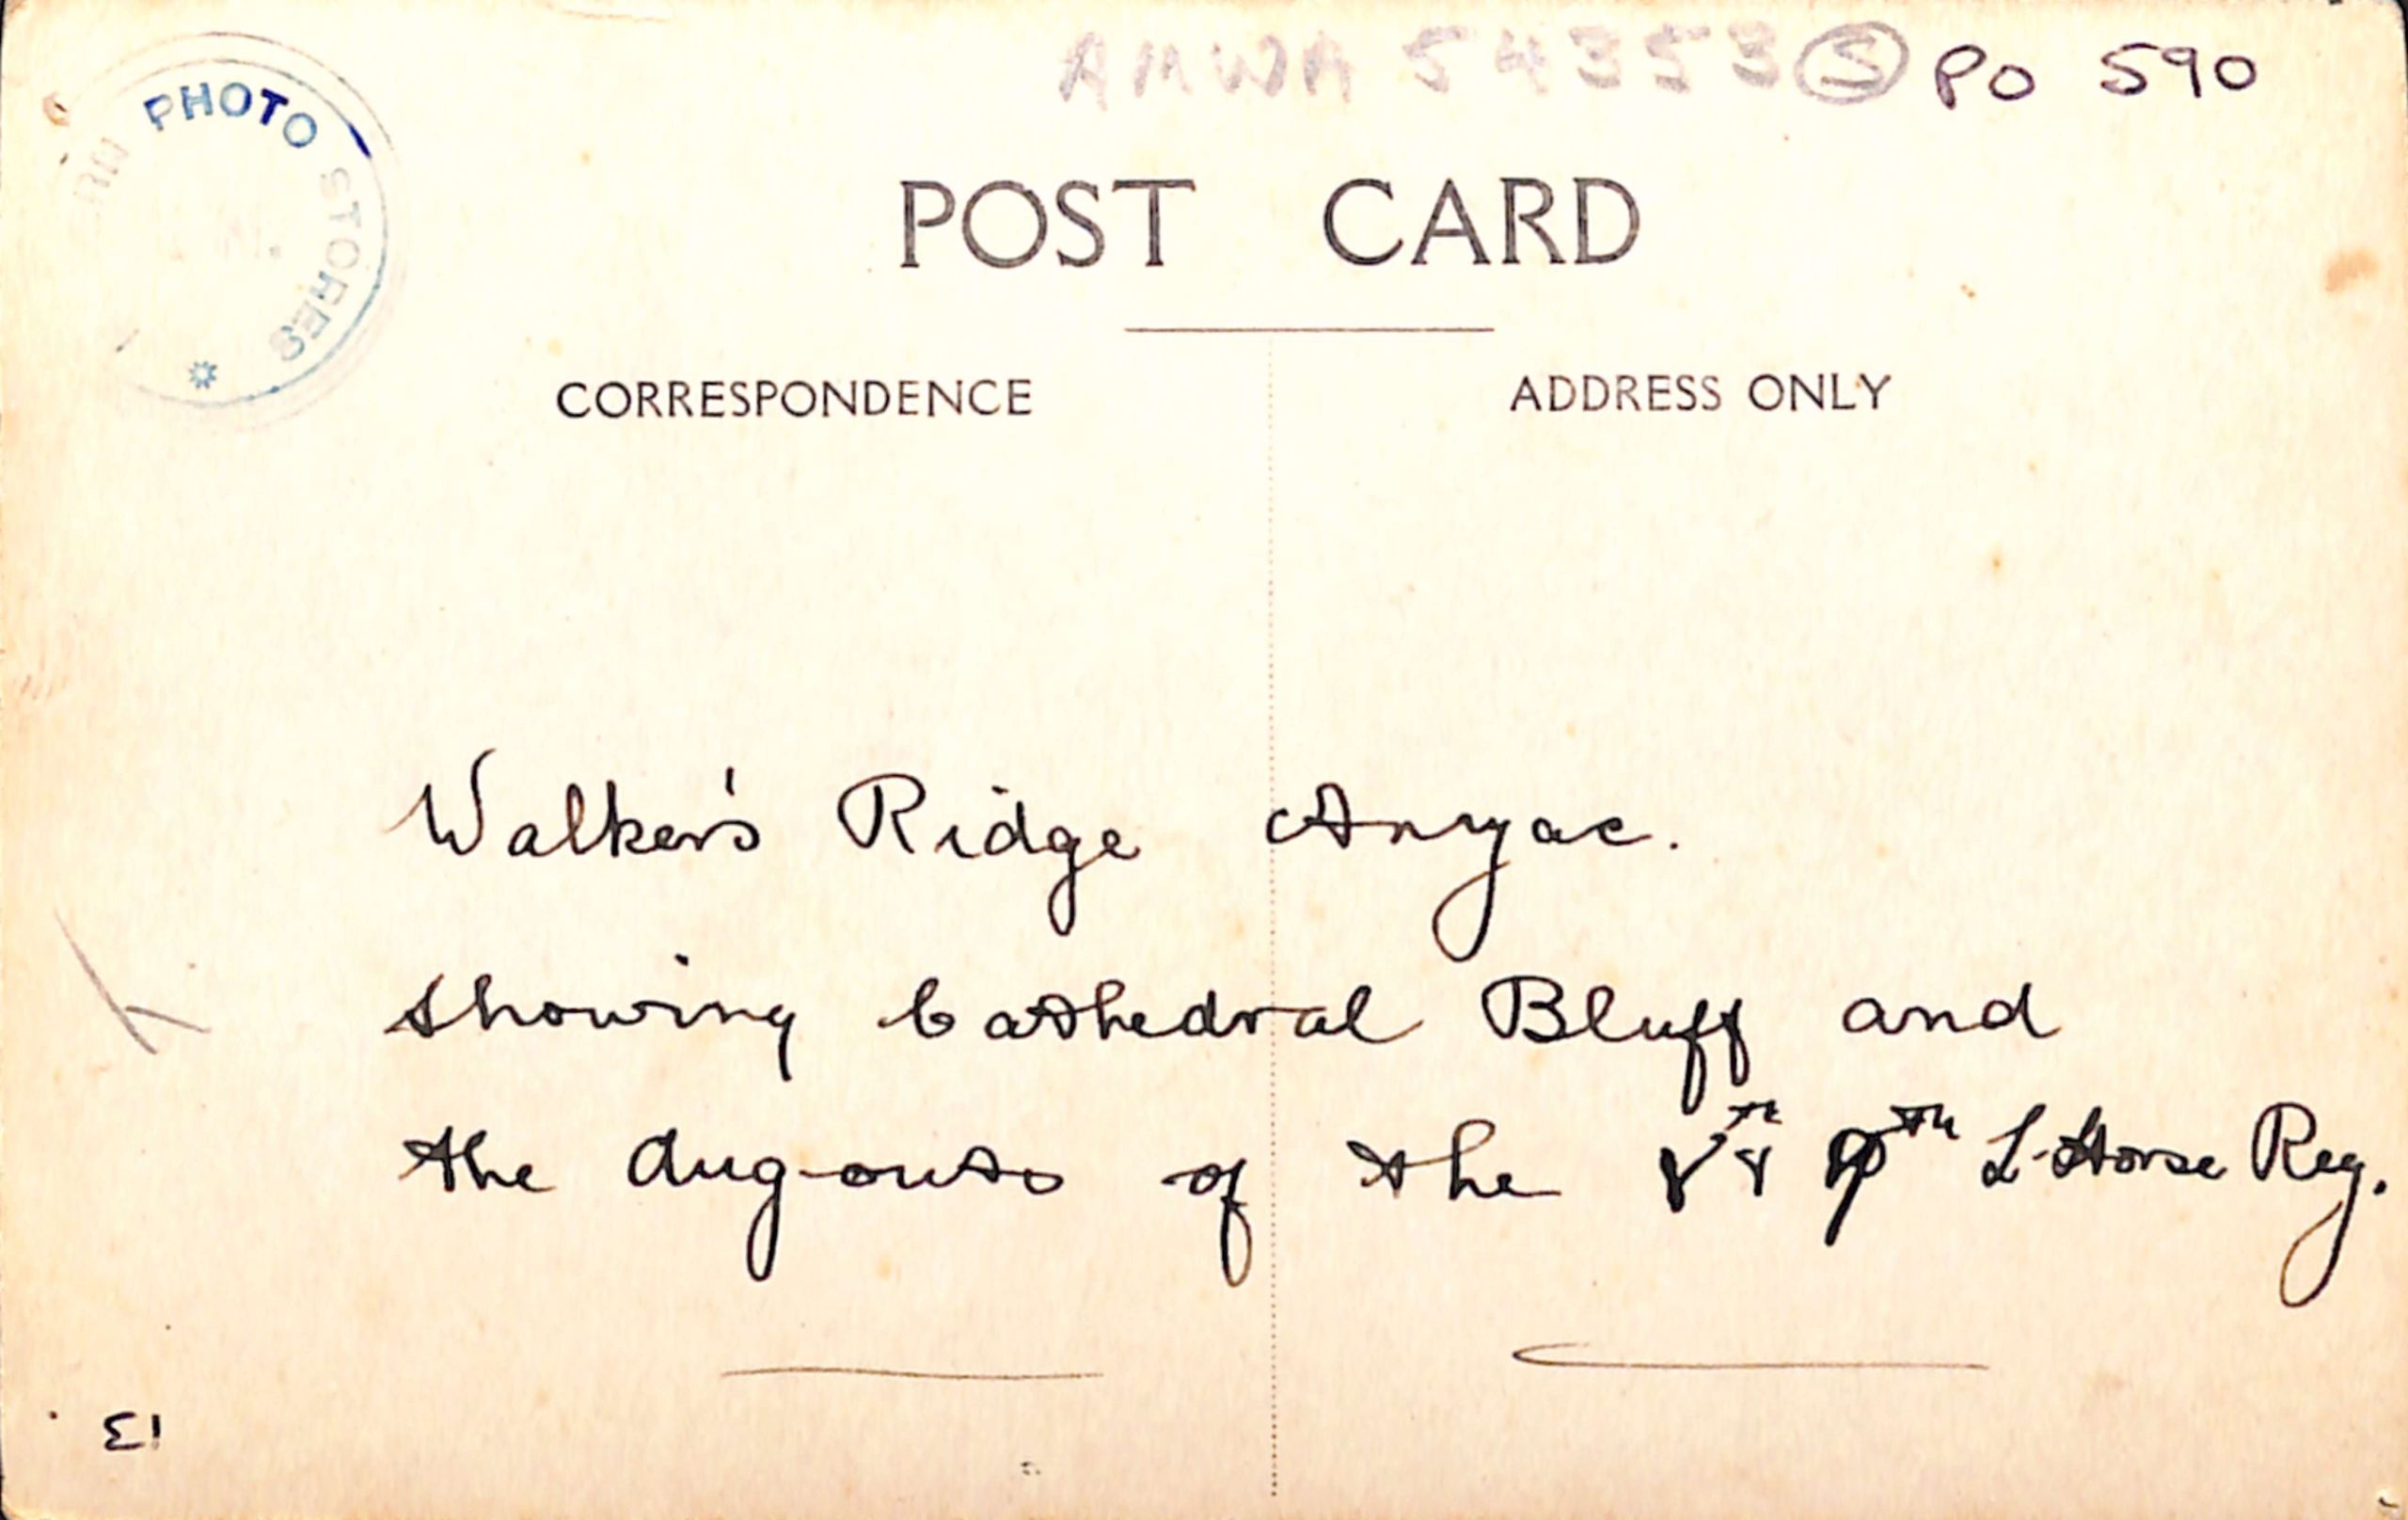 PHOTO STORES
AMWA 54353 S PO 590
POST CARD
CORRESPONDENCE
ADDRESS ONLY
Walker's Ridge Anzac.
showing Cathedral Bluff and
the dug-outs of the 9th L-Horse Reg.
13